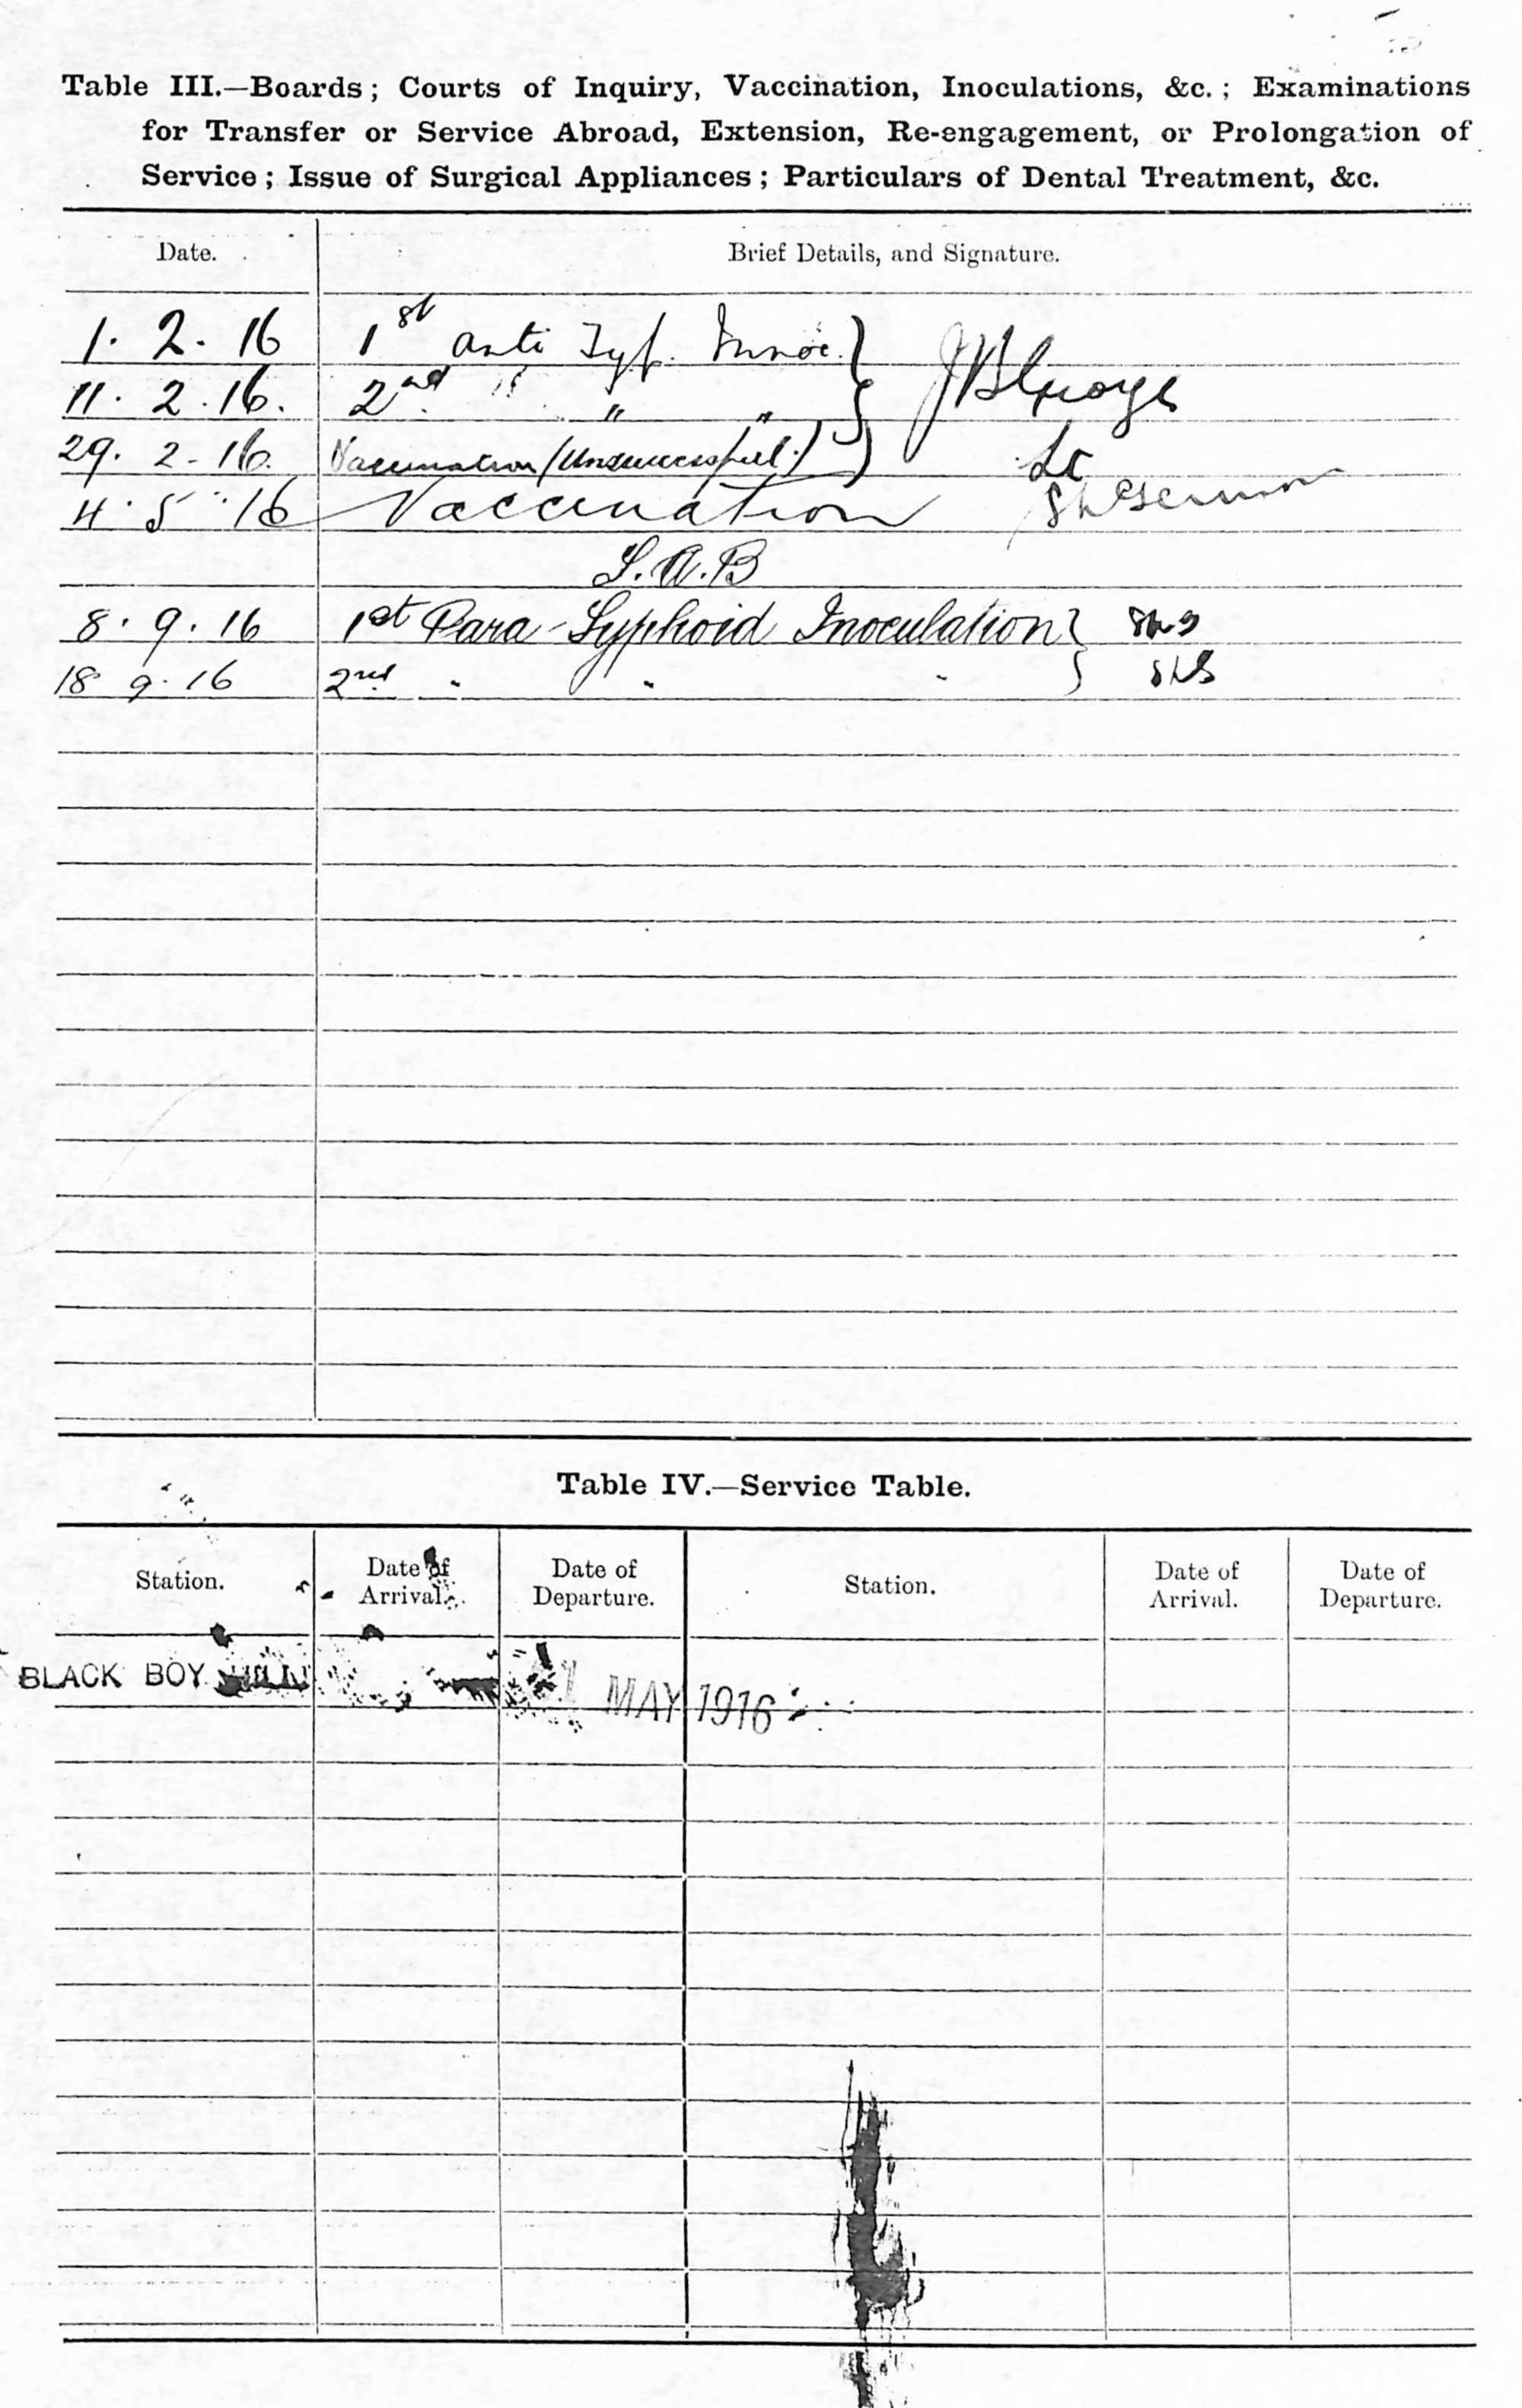 Table III.—Boards; Courts of Inquiry, Vaccination, Inoculations, &c.; Examinations
for Transfer or Service Abroad, Extension, Re-engagement, or Prolongation of
Service; Issue of Surgical Appliances; Particulars of Dental Treatment, &c.
Date. Brief Details, and Signature.
1. 2. 16 1st anti Typ. Innoc. }
11. 2. 16. 2nd " " " }
29. 2. 16. Vaccination (Unsuccessful.) }
4. 5. 16 Vaccination
8. 9. 16 1st Para-Typhoid Inoculation }
18 9. 16 2nd " " " }
Table IV.—Service Table.
Station. Date of Arrival. Date of Departure. Station. Date of Arrival. Date of Departure.
BLACK BOY HILL MAY 1916